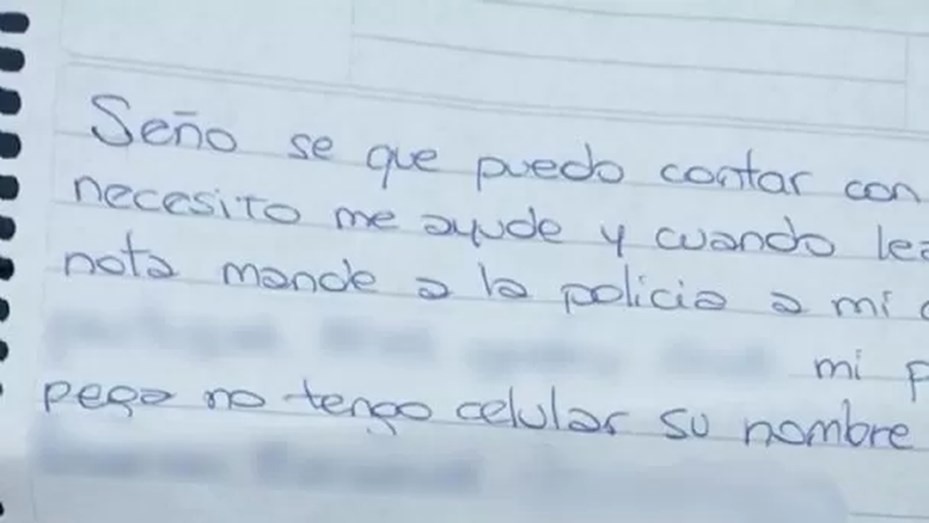 Seño se que puedo contar con
necesito me ayude y cuando lea
nota mande a la policia a mi
mi
pega no tengo celular su nombre